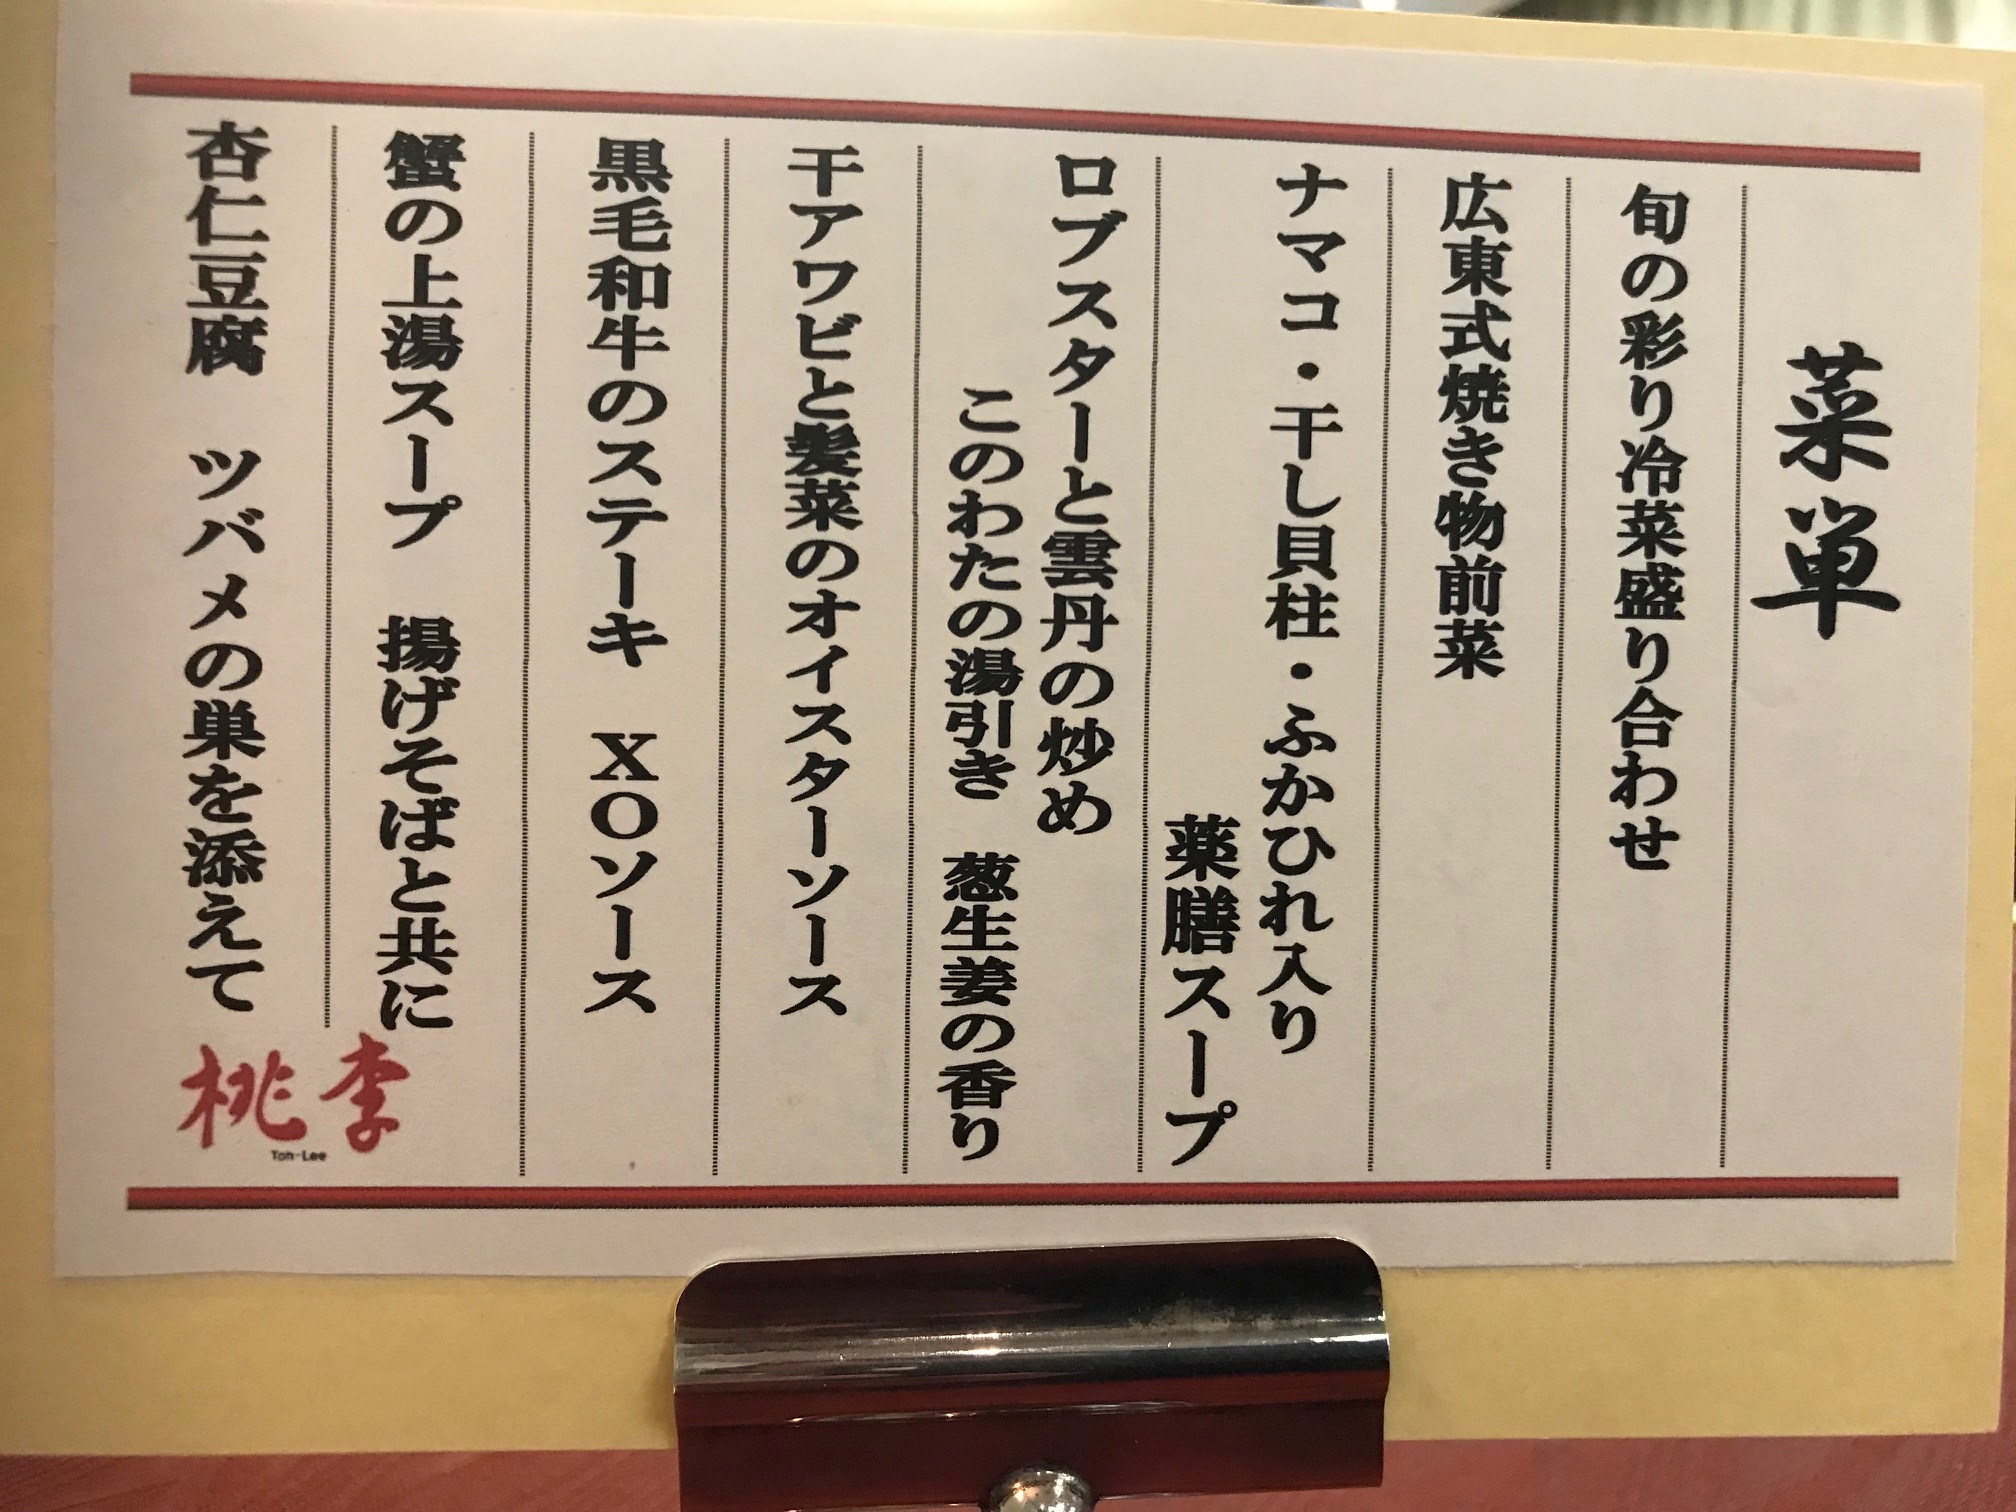 菜単
旬の彩り冷菜盛り合わせ
広東式焼き物前菜
ナマコ・干し貝柱・ふかひれ入り
薬膳スープ
ロブスターと雲丹の炒め
このわたの湯引き　葱生姜の香り
干アワビと髪菜のオイスターソース
黒毛和牛のステーキ　ＸＯソース
蟹の上湯スープ　揚げそばと共に
杏仁豆腐　ツバメの巣を添えて
桃李
Toh-Lee